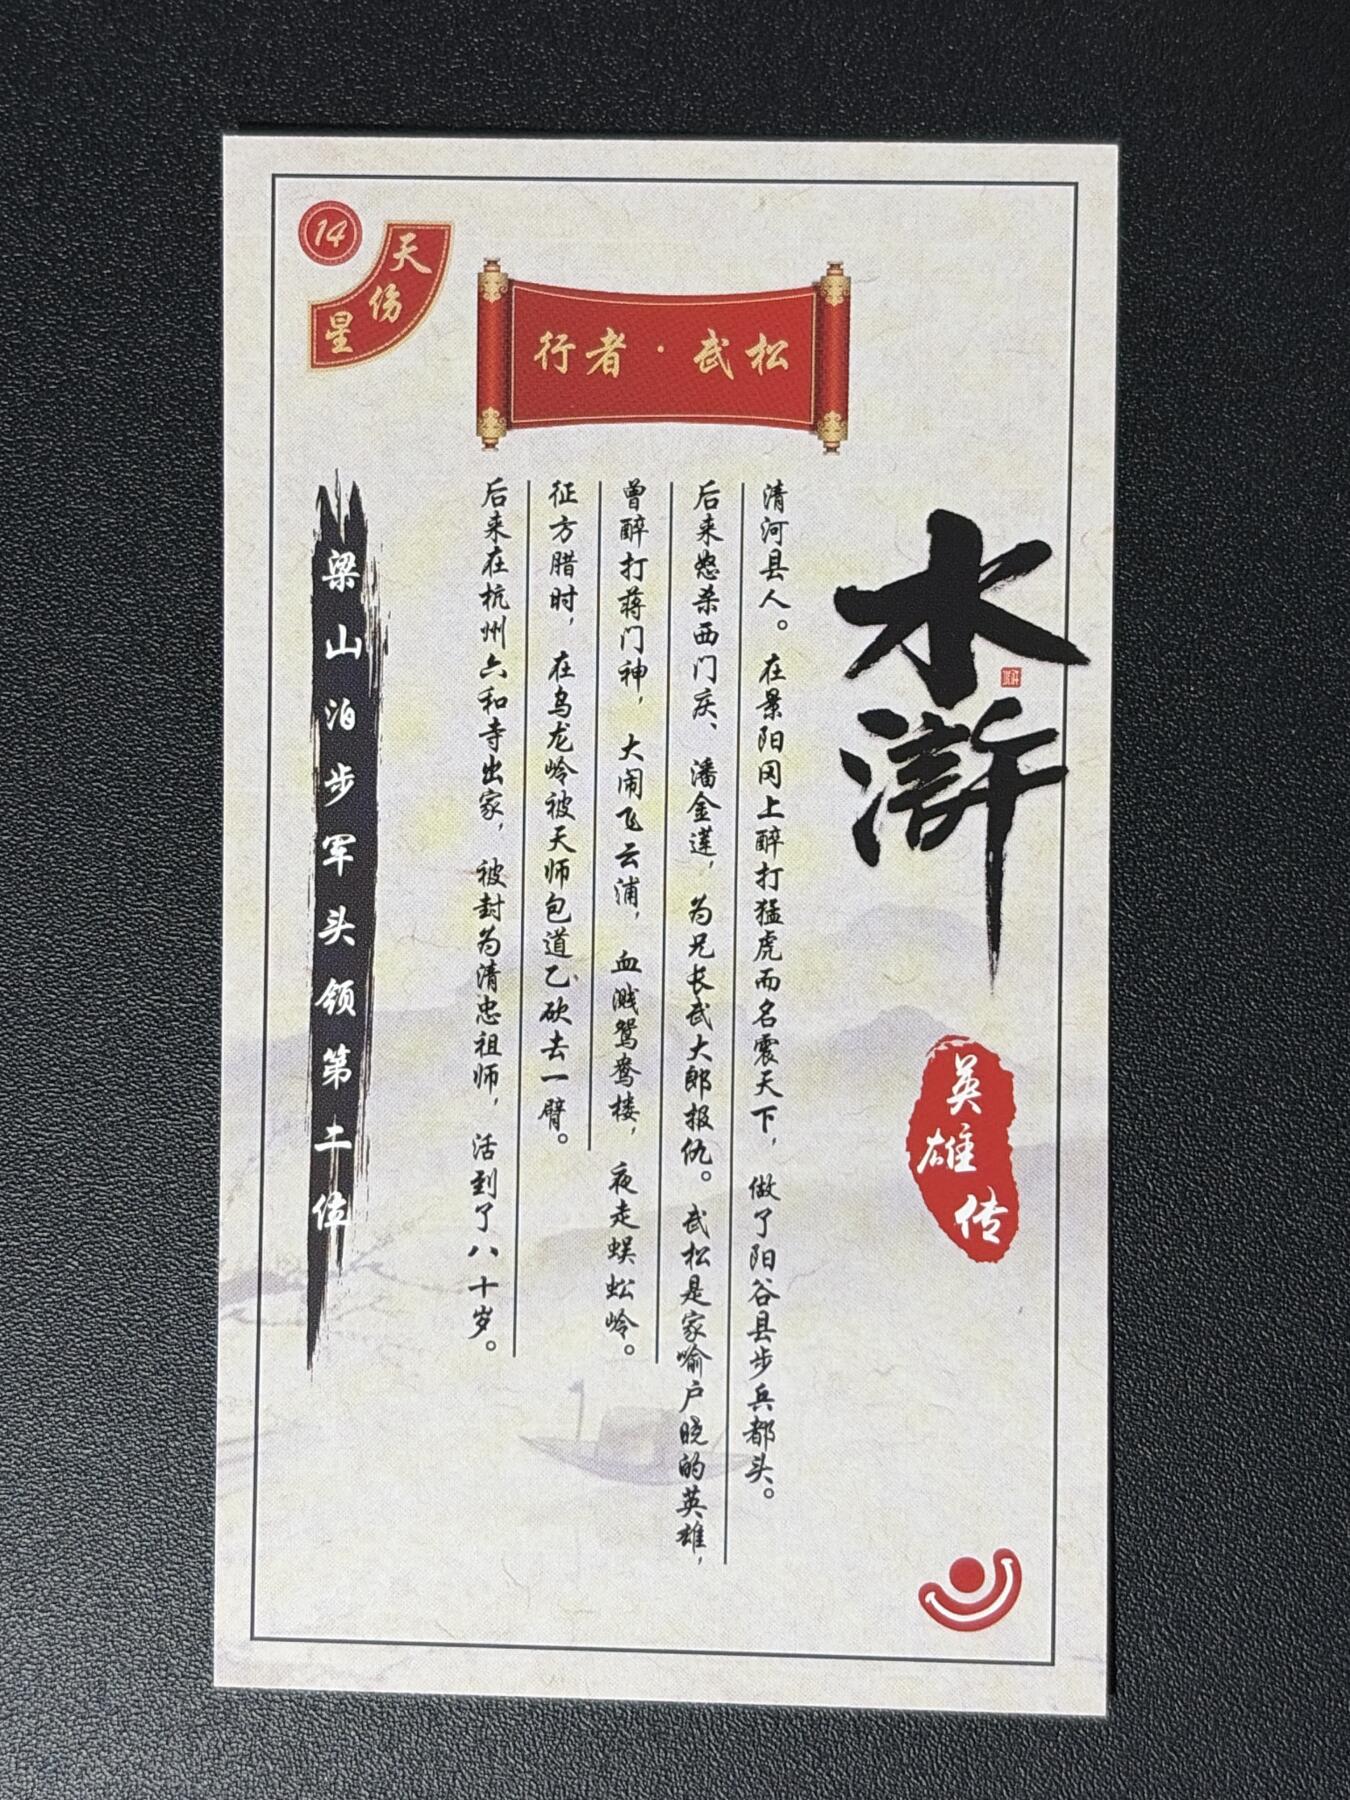 14
天伤星
行者·武松
水浒
英雄传
清河县人。在景阳冈上醉打猛虎而名震天下，做了阳谷县步兵都头。
后来怒杀西门庆、潘金莲，为兄长武大郎报仇。武松是家喻户晓的英雄，
曾醉打蒋门神，大闹飞云浦，血溅鸳鸯楼，夜走蜈蚣岭。
征方腊时，在乌龙岭被天师包道乙砍去一臂。
后来在杭州六和寺出家，被封为清忠祖师，活到了八十岁。
梁山泊步军头领第土位